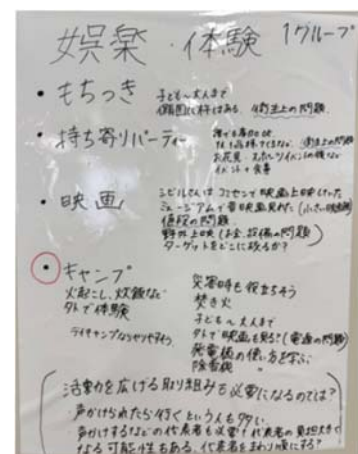 娯楽・体験 1グループ
・もちつき 子ども〜大人まで
 衛生上の問題
・持ち寄りパーティー 誰でも
 衛生上の問題
 お花見
 イベント+食事
・映画 シビルさんは で映画上映していた
 ミュージアムで昔映画見れた(小さい映画館)
 値段の問題
 野外上映(お金、設備の問題)
 ターゲットをどこに絞るか?
・キャンプ 災害時も役立ちそう
火起こし、炊飯など 焚き火
外で体験 子ども〜大人まで
デイキャンプならやりやすそう 外で映画も見る?(電源の問題)
 発電機の使い方を学ぶ
 除雪機 〃
活動を広げる取り組みも必要になるのでは?
・声かけられたら行くという人も多い
・声かけするなどの代表者も必要!代表者の負担大きく
なる可能性もある。代表者をまわり順にする?